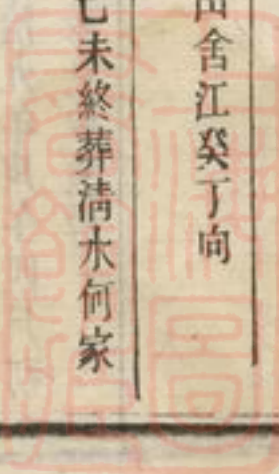 舍江癸丁向
未終葬清水何家